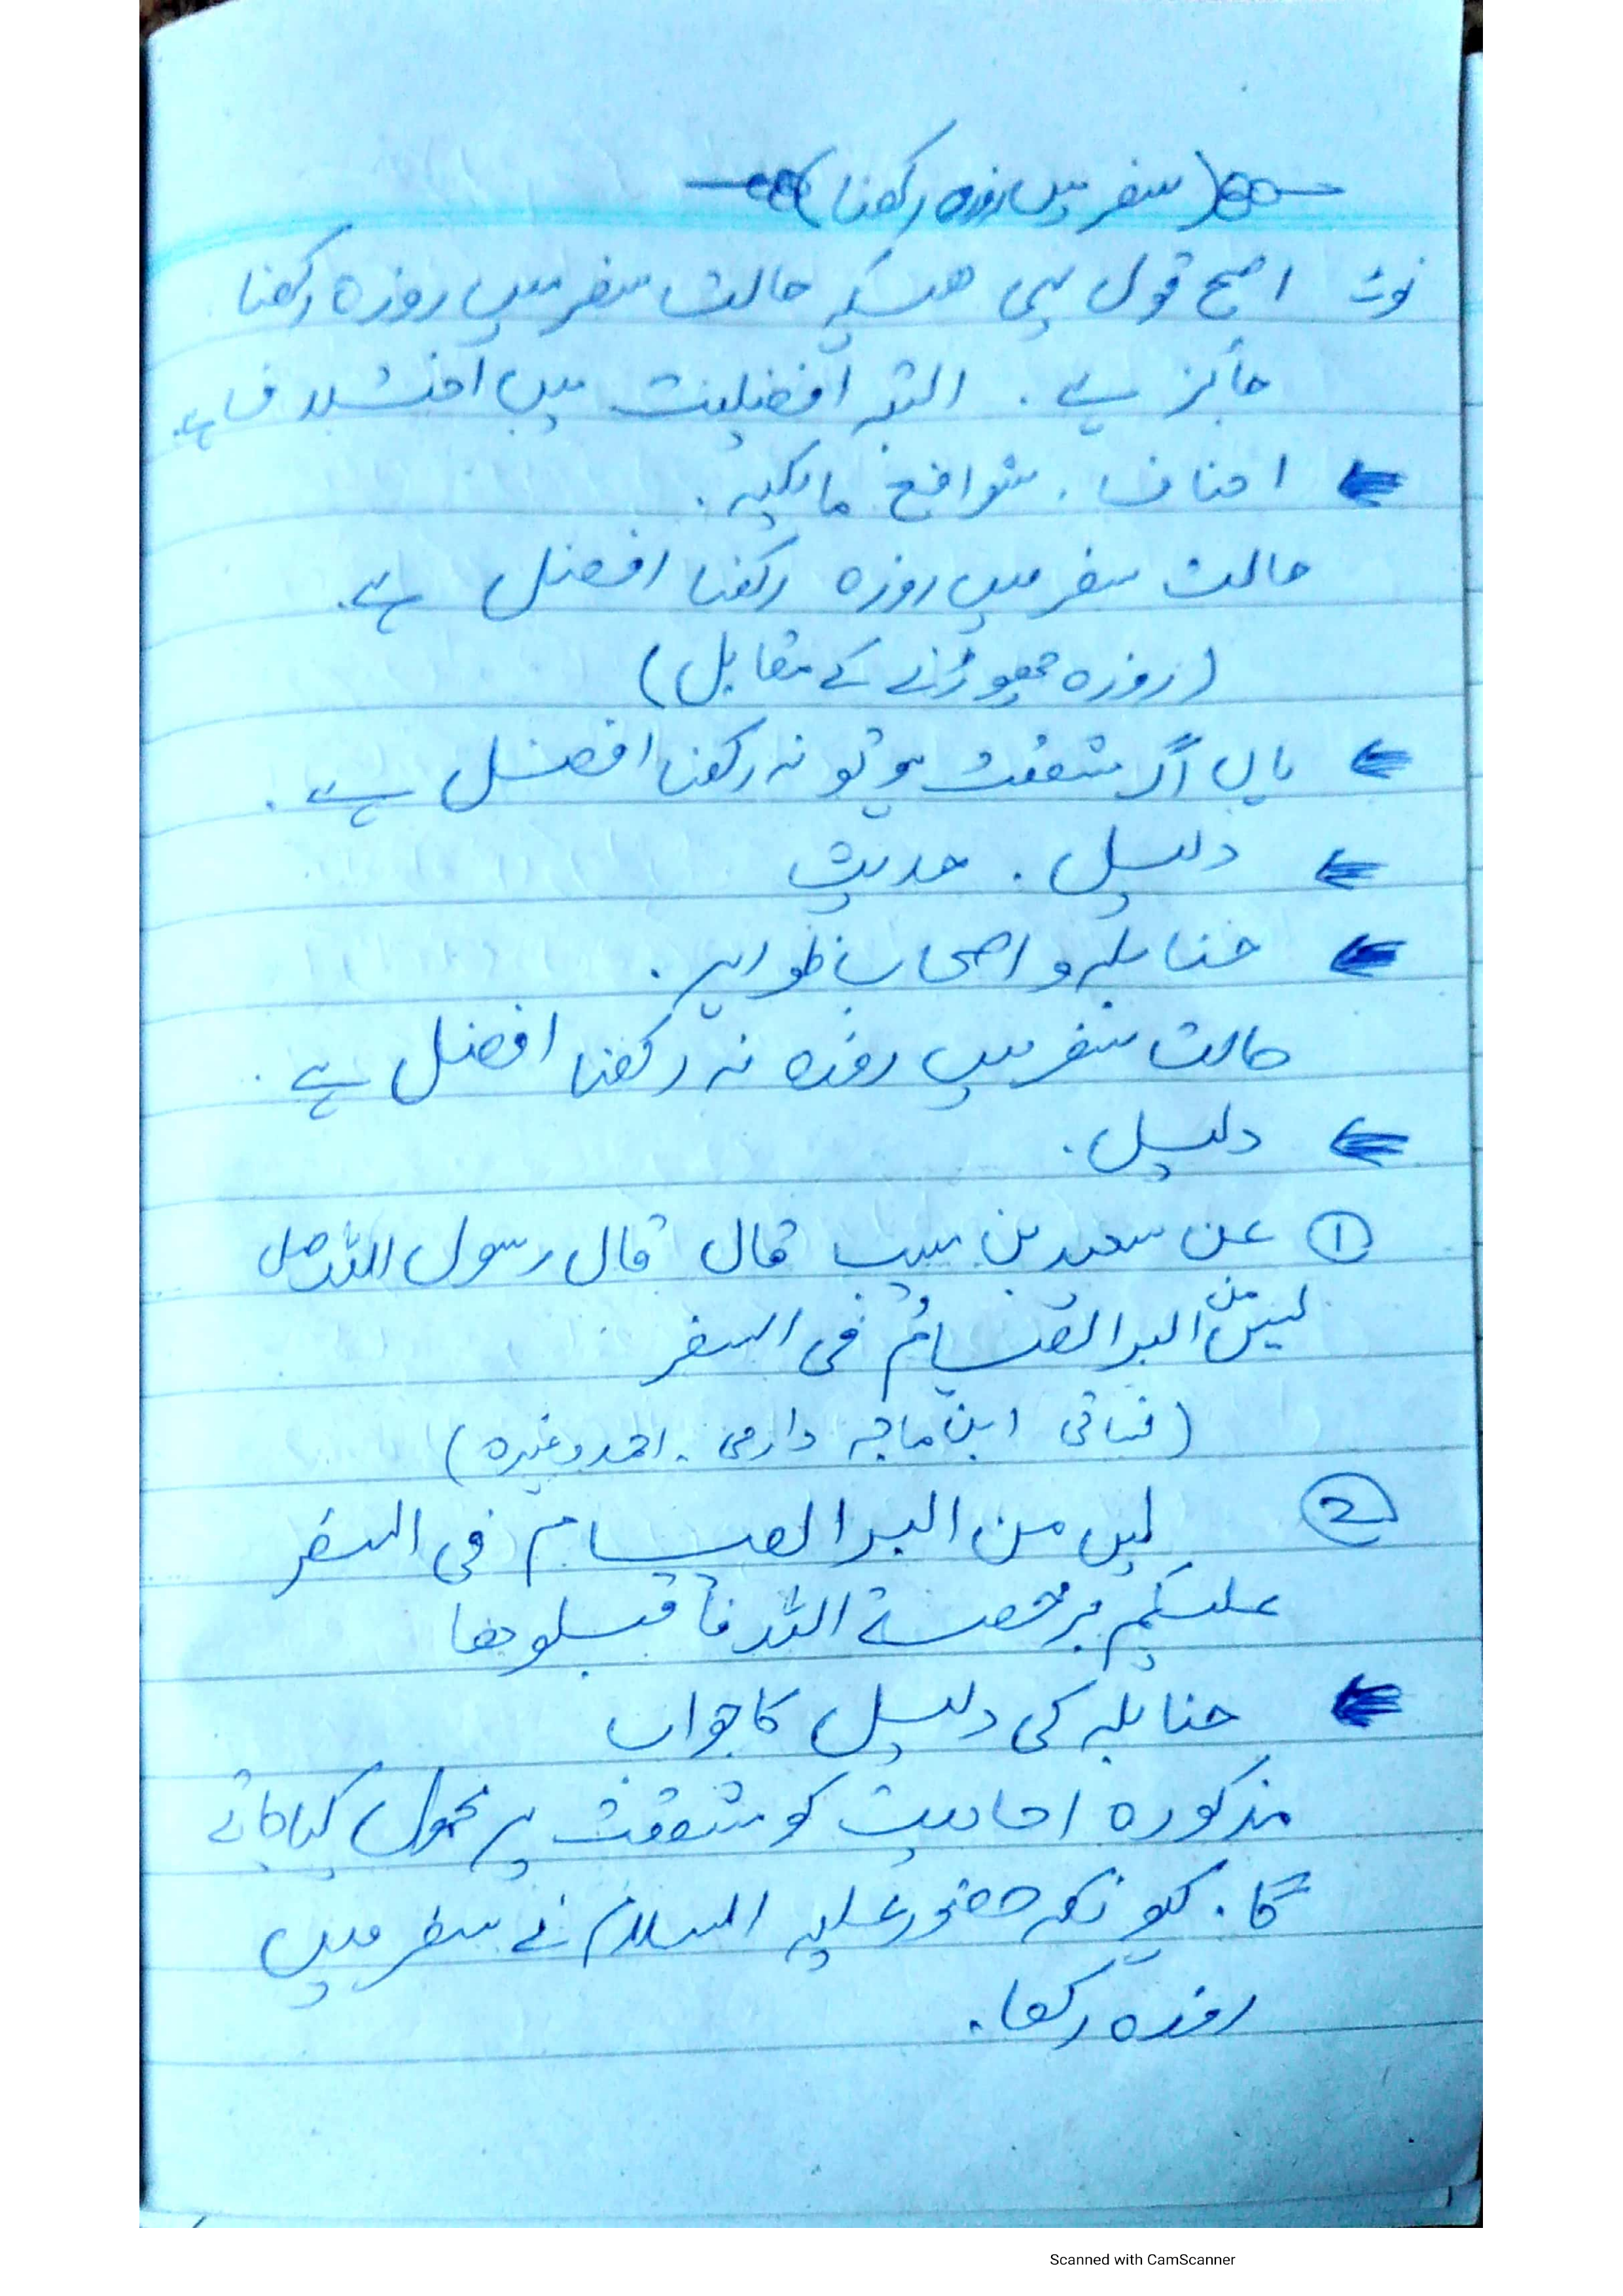 (سفر میں روزہ رکھنا)
نوٹ اصح قول یہی ھیکہ حالت سفر میں روزہ رکھنا
جائز ہے۔ البتہ افضلیت میں اختلاف ہے۔
احناف، شوافع مالکیہ۔
حالت سفر میں روزہ رکھنا افضل ہے۔
(روزہ چھوڑنے کے مقابل)
ہاں اگر مشقت ہو تو نہ رکھنا افضل ہے۔
دلیل۔ حدیث
حنابلہ و اصحاب ظواہر۔
حالت سفر میں روزہ نہ رکھنا افضل ہے۔
دلیل۔
① عن سعید بن مسیب قال قال رسول اللہ صل
لیس من البر الصیامُ فی السفر
ابن ماجہ دارمی۔ احمد وغیرہ)
② لیس من البر الصیام فی السفر
علیکم برخصۃ اللہ فاقبلوھا
حنابلہ کی دلیل کا جواب
مذکورہ احادیث کو مشقت پر محمول کیا جائے
گا۔ کیونکہ حضور علیہ السلام نے سفر میں
روزہ رکھا۔
Scanned with CamScanner